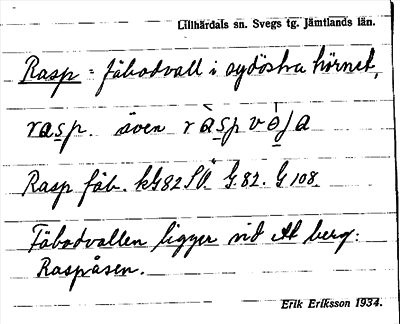 Lillhärdals sn. Svegs tg. Jämtlands län.
Rasp = fäbodvall i sydöstra hörnet,
rasp. även ràspvòja
Rasp fäb. kG82SO. G.82. G 108.
Fäbodvallen ligger vid ett berg:
Raspåsen.
Erik Eriksson 1934.